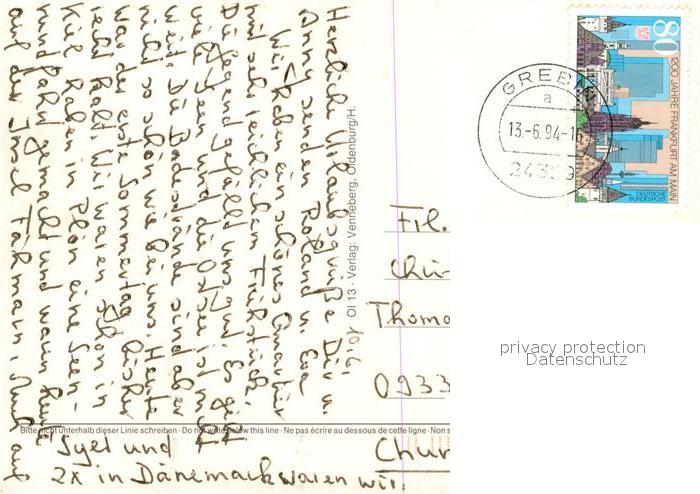 Herzliche Urlaubsgrüße Dir u.
Anny senden Roland u. Eva
Wir haben ein schönes Quartier
mit sehr reichlichem Frühstück.
Die Gegend gefällt uns gut. Es gibt
viele Seen und die Ostsee ist nicht
weit. Die Badestrände sind aber
nicht so schön wie bei uns. Heute
war der erste Sommertag bisher
recht kalt. Wir waren schon in
Kiel haben in Plön eine Seen-
rundfahrt gemacht und waren heute
auf der Insel Fehmarn. Auch auf
Sylt und
2x in Dänemark waren wir.
10.6.
Ol 13 · Verlag: Venneberg, Oldenburg/H.
Bitte nicht unterhalb dieser Linie schreiben · Do not write below this line · Ne pas écrire au dessous de cette ligne · Non s
GREBIN
a
13.-6.94-16
24329
80
1200 JAHRE FRANKFURT AM MAIN
DEUTSCHE
BUNDESPOST
Chri
Thoma
0933
Chur
privacy protection
Datenschutz